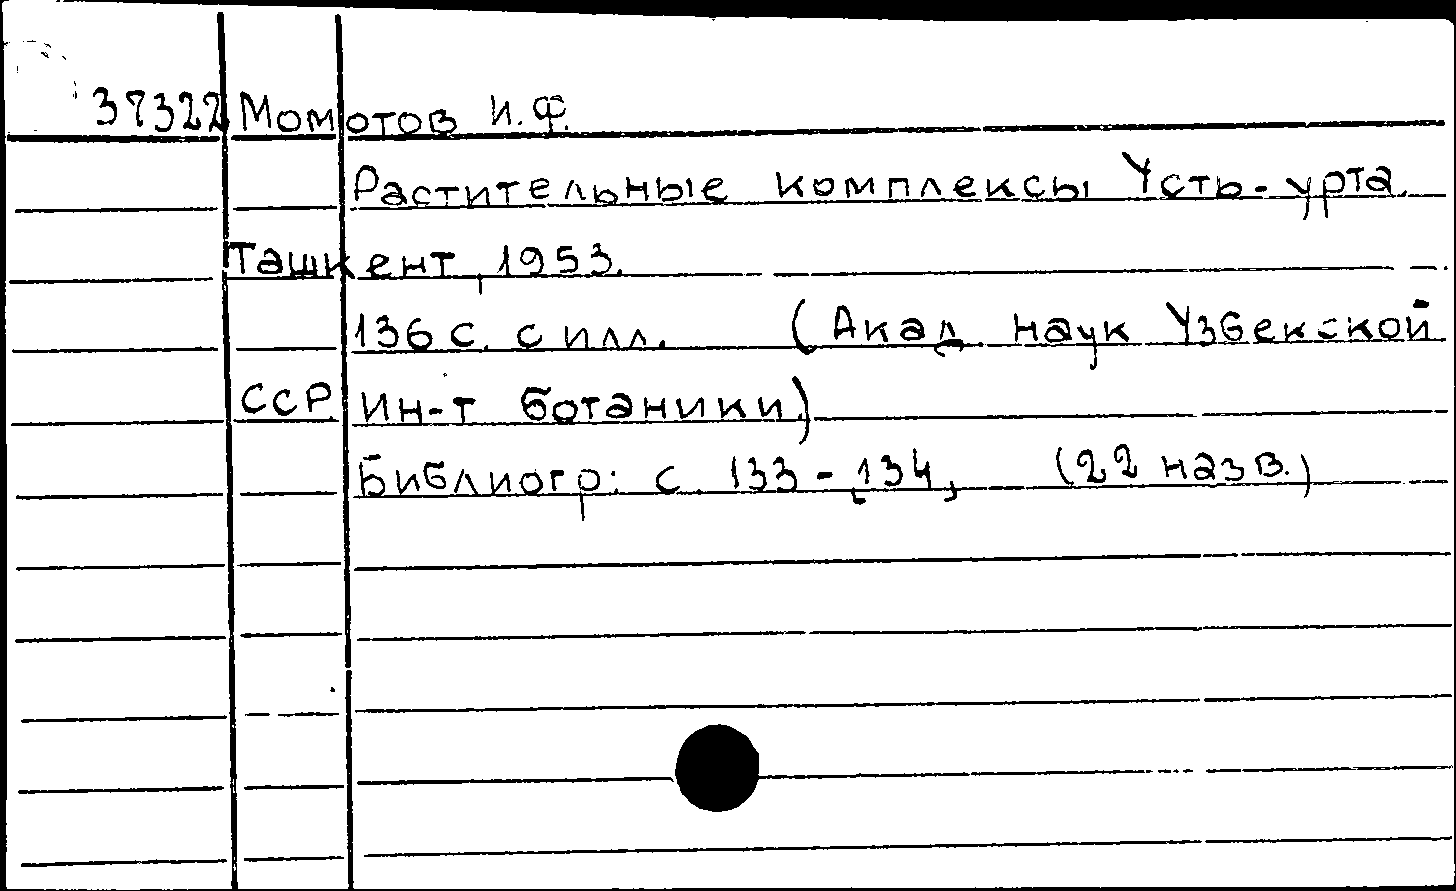 37322 Момотов И.Ф.
Растительные комплексы Усть-урта.
Ташкент, 1953.
136 с. с илл. (Акад. наук Узбекской
ССР. Ин-т ботаники.)
Библиогр: с. 133-134, (22 назв.)